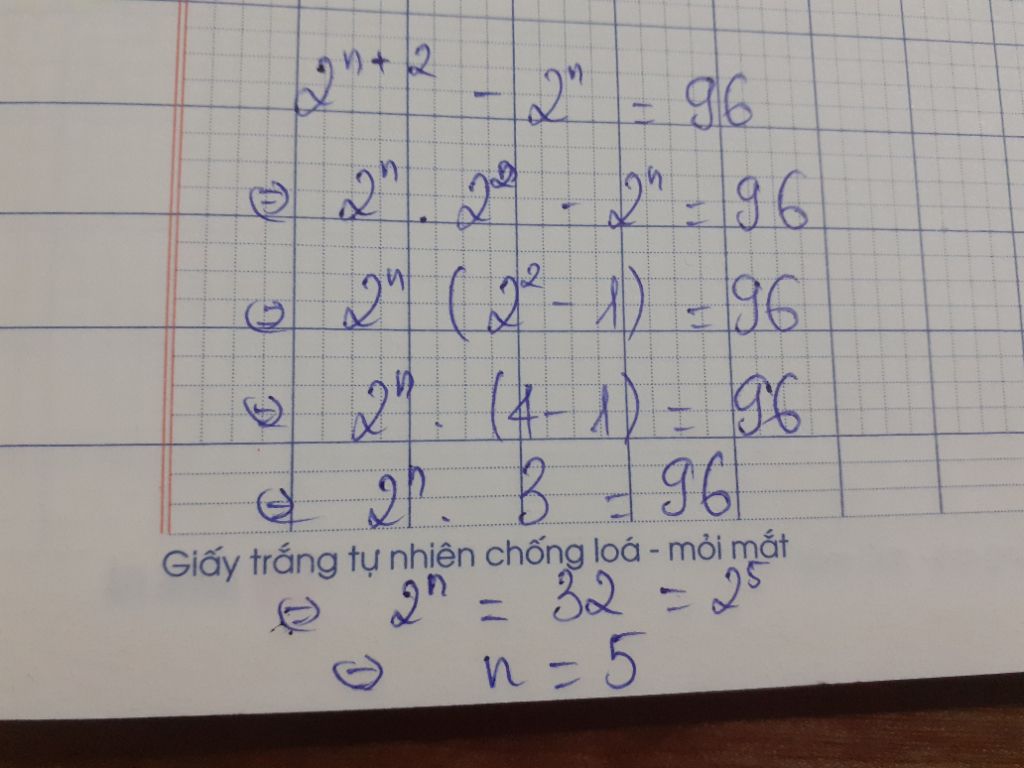 2^{n+2} - 2^n = 96
⇔ 2^n . 2^2 - 2^n = 96
⇔ 2^n (2^2 - 1) = 96
⇔ 2^n . (4 - 1) = 96
⇔ 2^n . 3 = 96
Giấy trắng tự nhiên chống loá - mỏi mắt
⇔ 2^n = 32 = 2^5
⇔ n = 5